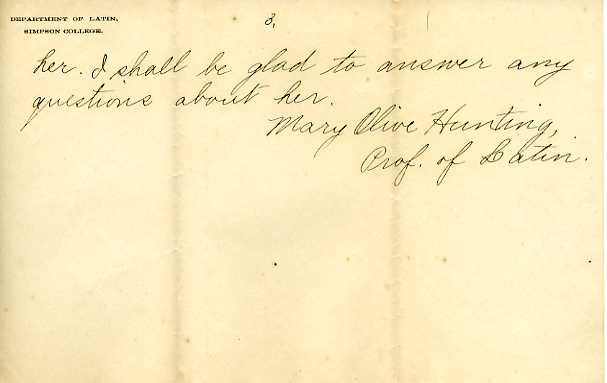 DEPARTMENT OF LATIN,
SIMPSON COLLEGE.
3.
her. I shall be glad to answer any
questions about her.
Mary Olive Hunting,
Prof. of Latin.